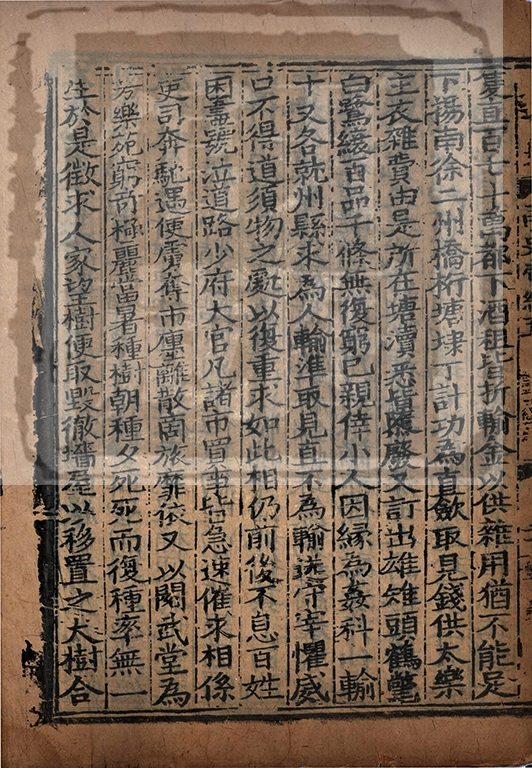 虔直百七十萬都下酒租皆折輸金以供雜用猶不能足
下揚南徐二州橋桁塘埭丁計功為直斂取見錢供太樂
主衣雜費由是所在塘瀆悉皆隳廢又訂出雄雉頭鶴氅
白鷺縗百品千條無復窮已親倖小人因緣為姦科一輸
十又各就州縣求為人輸準取見直不為輸送守宰懼威
口不得道須物之處以復重求如此相仍前後不息百姓
困盡號泣道路少府大官凡諸市買事皆急速催求相係
吏司奔馳遇便虜奪市廛離散商旅靡依又以閱武堂為
芳樂苑窮奇極麗當暑種樹朝種夕死死而復種率無一
生於是徵求人家望樹便取毀徹墻屋以移置之大樹合